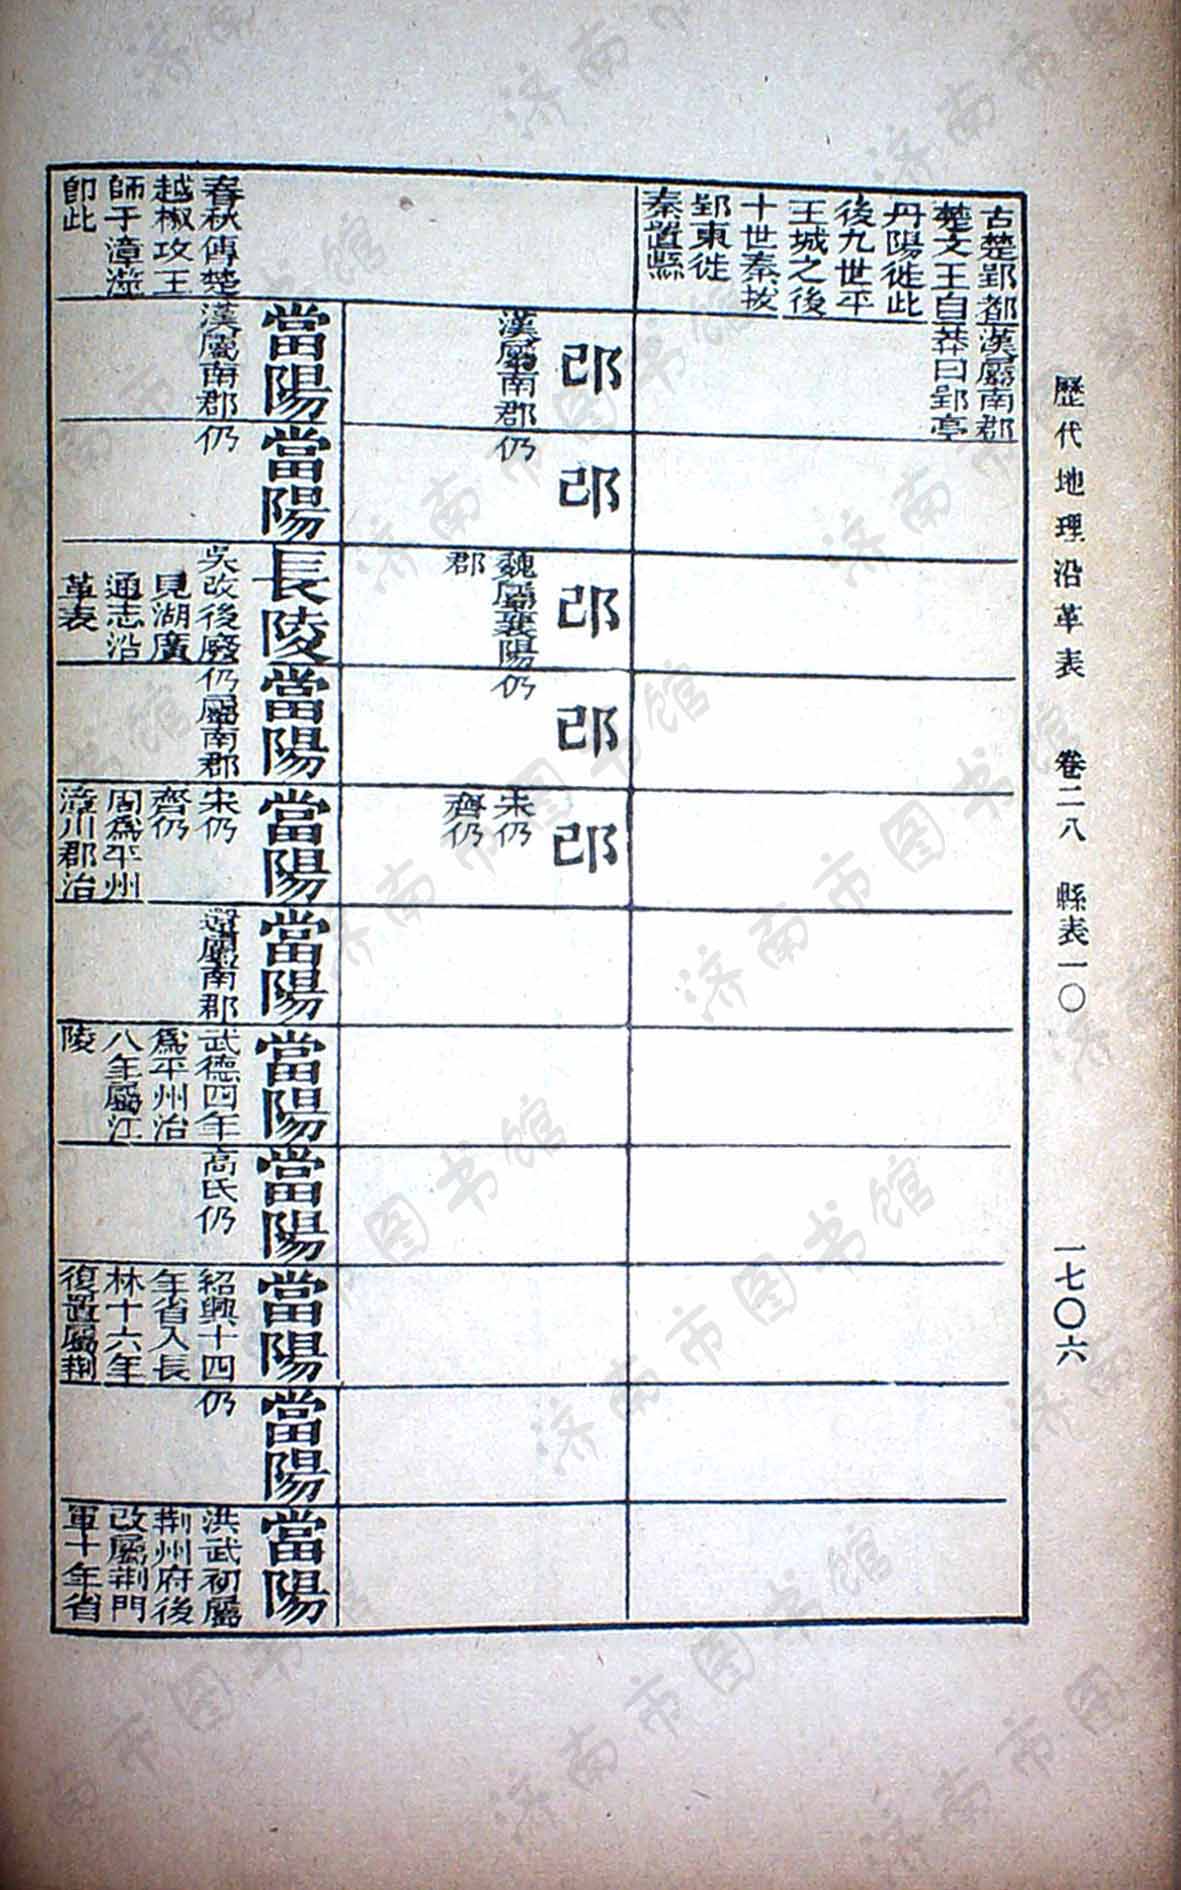 歷代地理沿革表 卷二八 縣表一〇 一七〇六
古楚郢都
楚文王自
丹陽徙此
後九世平
王城之後
十世秦拔
郢東徙
秦置縣
漢屬南郡
莽曰郢亭
邔
漢屬南郡
邔
仍
邔
魏屬襄陽
郡
邔
仍
邔
宋仍
齊仍
春秋傳楚
越椒攻王
師于漳澨
卽此
當陽
漢屬南郡
當陽
仍
長陵
吳改後廢
見湖廣
通志沿
革表
當陽
仍屬南郡
當陽
宋仍
齊仍
周爲平州
漳川郡治
當陽
還屬南郡
當陽
武德四年
爲平州治
八年屬江
陵
當陽
高氏仍
當陽
紹興十四
年省入長
林十六年
復置屬荆
當陽
仍
當陽
洪武初屬
荆州府後
改屬荆門
軍十年省
济南市图书馆